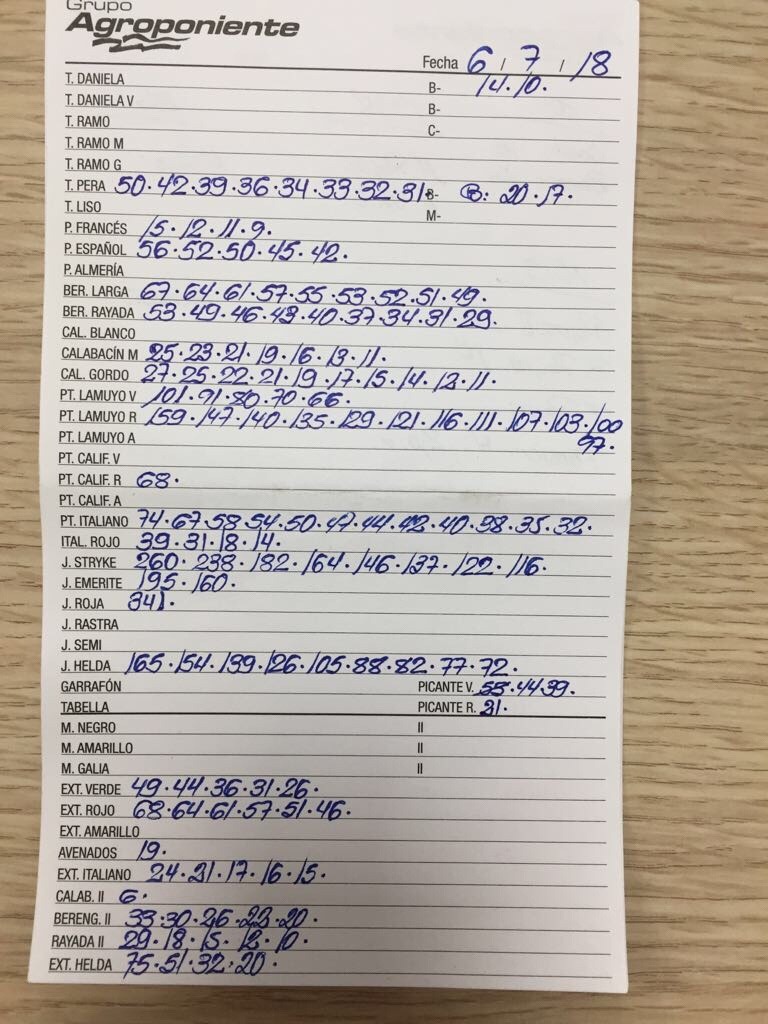 Grupo
Agroponiente
Fecha 6 / 7 / 18
T. DANIELA B- 14. 10.
T. DANIELA V B-
T. RAMO C-
T. RAMO M
T. RAMO G
T. PERA 50. 42. 39. 36. 34. 33. 32. 31. B- B: 20. 17.
T. LISO M-
P. FRANCÉS 15. 12. 11. 9.
P. ESPAÑOL 56. 52. 50. 45. 42.
P. ALMERÍA
BER. LARGA 67. 64. 61. 57. 55. 53. 52. 51. 49.
BER. RAYADA 53. 49. 46. 43. 40. 37. 34. 31. 29.
CAL. BLANCO
CALABACÍN M 25. 23. 21. 19. 16. 13. 11.
CAL. GORDO 27. 25. 22. 21. 19. 17. 15. 14. 12. 11.
PT. LAMUYO V 101. 91. 80. 70. 66.
PT. LAMUYO R 159. 147. 140. 135. 129. 121. 116. 111. 107. 103. 100
97.
PT. LAMUYO A
PT. CALIF. V
PT. CALIF. R 68.
PT. CALIF. A
PT. ITALIANO 74. 67. 58. 54. 50. 47. 44. 42. 40. 38. 35. 32.
ITAL. ROJO 39. 31. 18. 14.
J. STRYKE 260. 238. 182. 164. 146. 137. 122. 116.
J. EMERITE 195. 160.
J. ROJA 341.
J. RASTRA
J. SEMI
J. HELDA 165. 154. 139. 126. 105. 88. 82. 77. 72.
GARRAFÓN PICANTE V. 44 39.
TABELLA PICANTE R. 21.
M. NEGRO II
M. AMARILLO II
M. GALIA II
EXT. VERDE 49. 44. 36. 31. 26.
EXT. ROJO 68. 64. 61. 57. 51. 46.
EXT. AMARILLO
AVENADOS 19.
EXT. ITALIANO 24. 21. 17. 16. 15.
CALAB. II 6.
BERENG. II 33. 30. 26. 23. 20.
RAYADA II 29. 18. 15. 12. 10.
EXT. HELDA 75. 51. 32. 20.